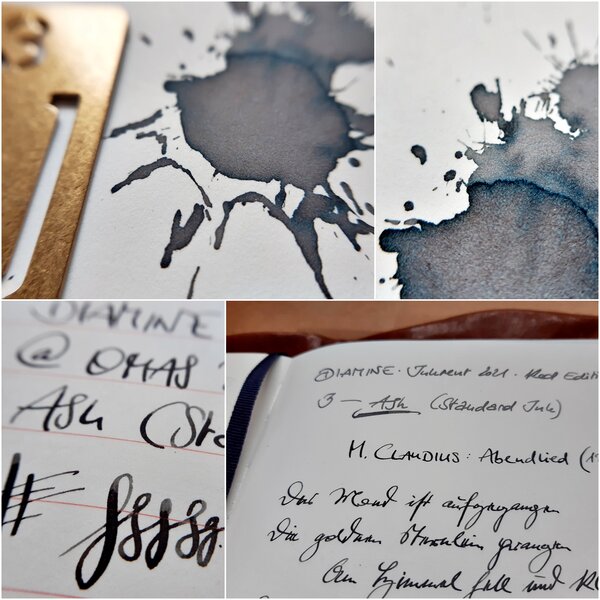 DIAMINE
@ OMAS
Ash (Sta
# ssssss.
DIAMINE · Inkvent 2021 · Red Editi
3 — Ash (Standard Ink)
M. CLAUDIUS: Abendlied (1
Der Mond ist aufgegangen
Die goldnen Sternlein prangen
Am Himmel hell und kl